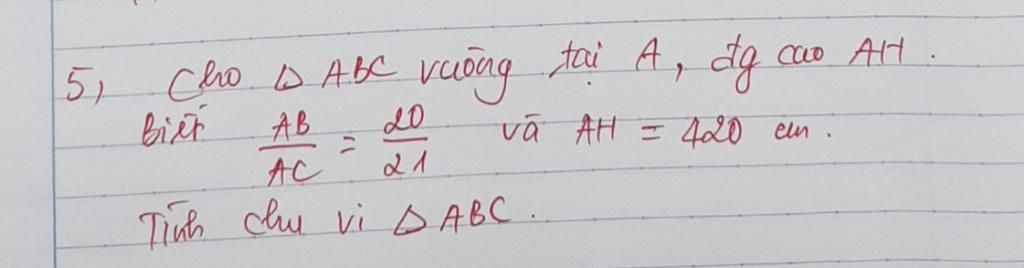 5, Cho Δ ABC vuông tại A, đg cao AH.
Biết AB/AC = 20/21 và AH = 420 cm.
Tính chu vi Δ ABC.